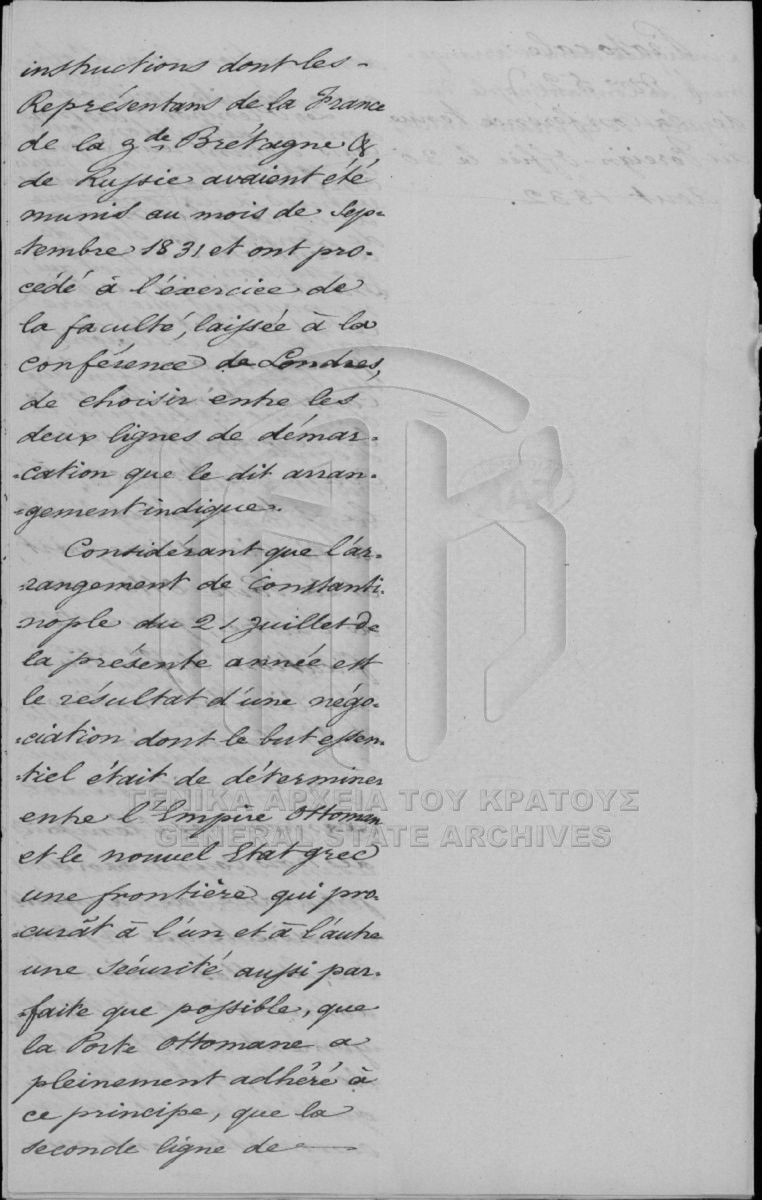 instructions dont les
Représentans de la France
de la gde Brétagne &
de Russie avaient été
munis au mois de Sep-
-tembre 1831 et ont pro-
cédé à l'éxercice de
la faculté, laissée à la
conférence de Londres,
de choisir entre les
deux lignes de démar-
-cation que le dit arran-
-gement indique.
Considérant que l'ar-
-rangement de Constanti-
-nople du 21 Juillet de
la présente année est
le résultat d'une négo-
-ciation dont le but essen-
-tiel était de déterminer
entre l'Empire Ottoman
et le nouvel Etat grec
une frontière qui pro-
-curât à l'un et à l'autre
une sécurité aussi par-
-faite que possible, que
la Porte Ottomane a
pleinement adhéré à
ce principe, que la
seconde ligne de
ΓΕΝΙΚΑ ΑΡΧΕΙΑ ΤΟΥ ΚΡΑΤΟΥΣ
GENERAL STATE ARCHIVES